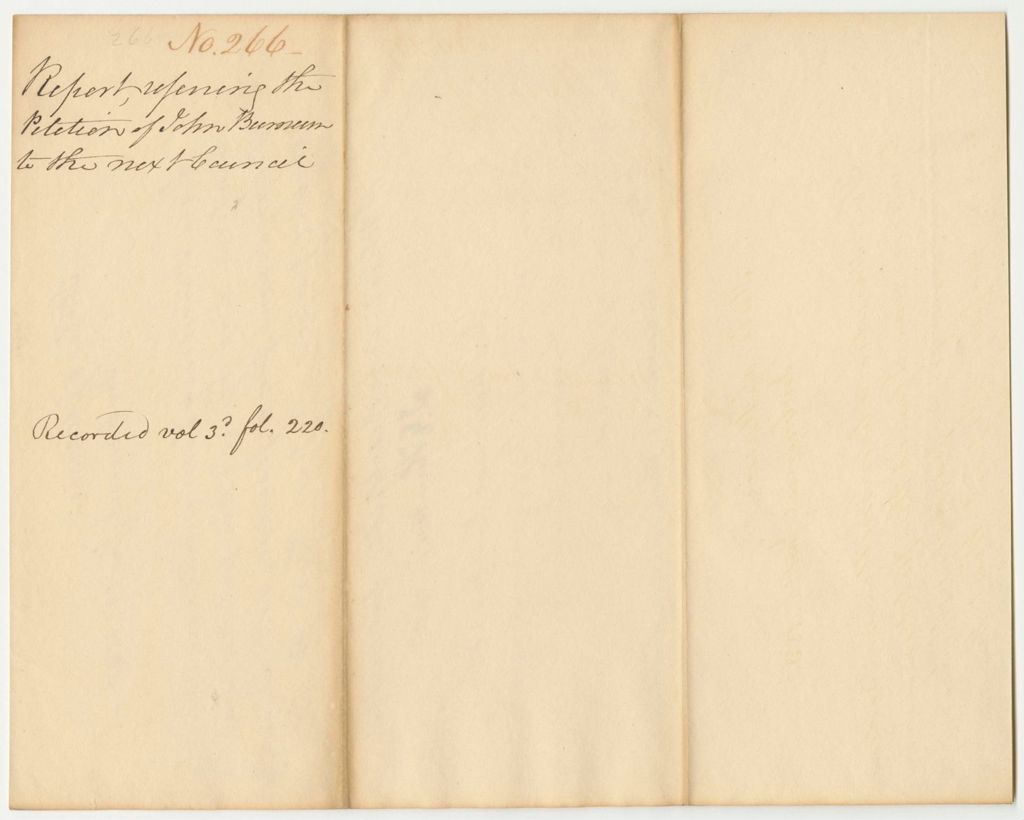 266
No. 266-
Report, refering the
Petition of John
to the next Council
Recorded vol 3d fol. 220.